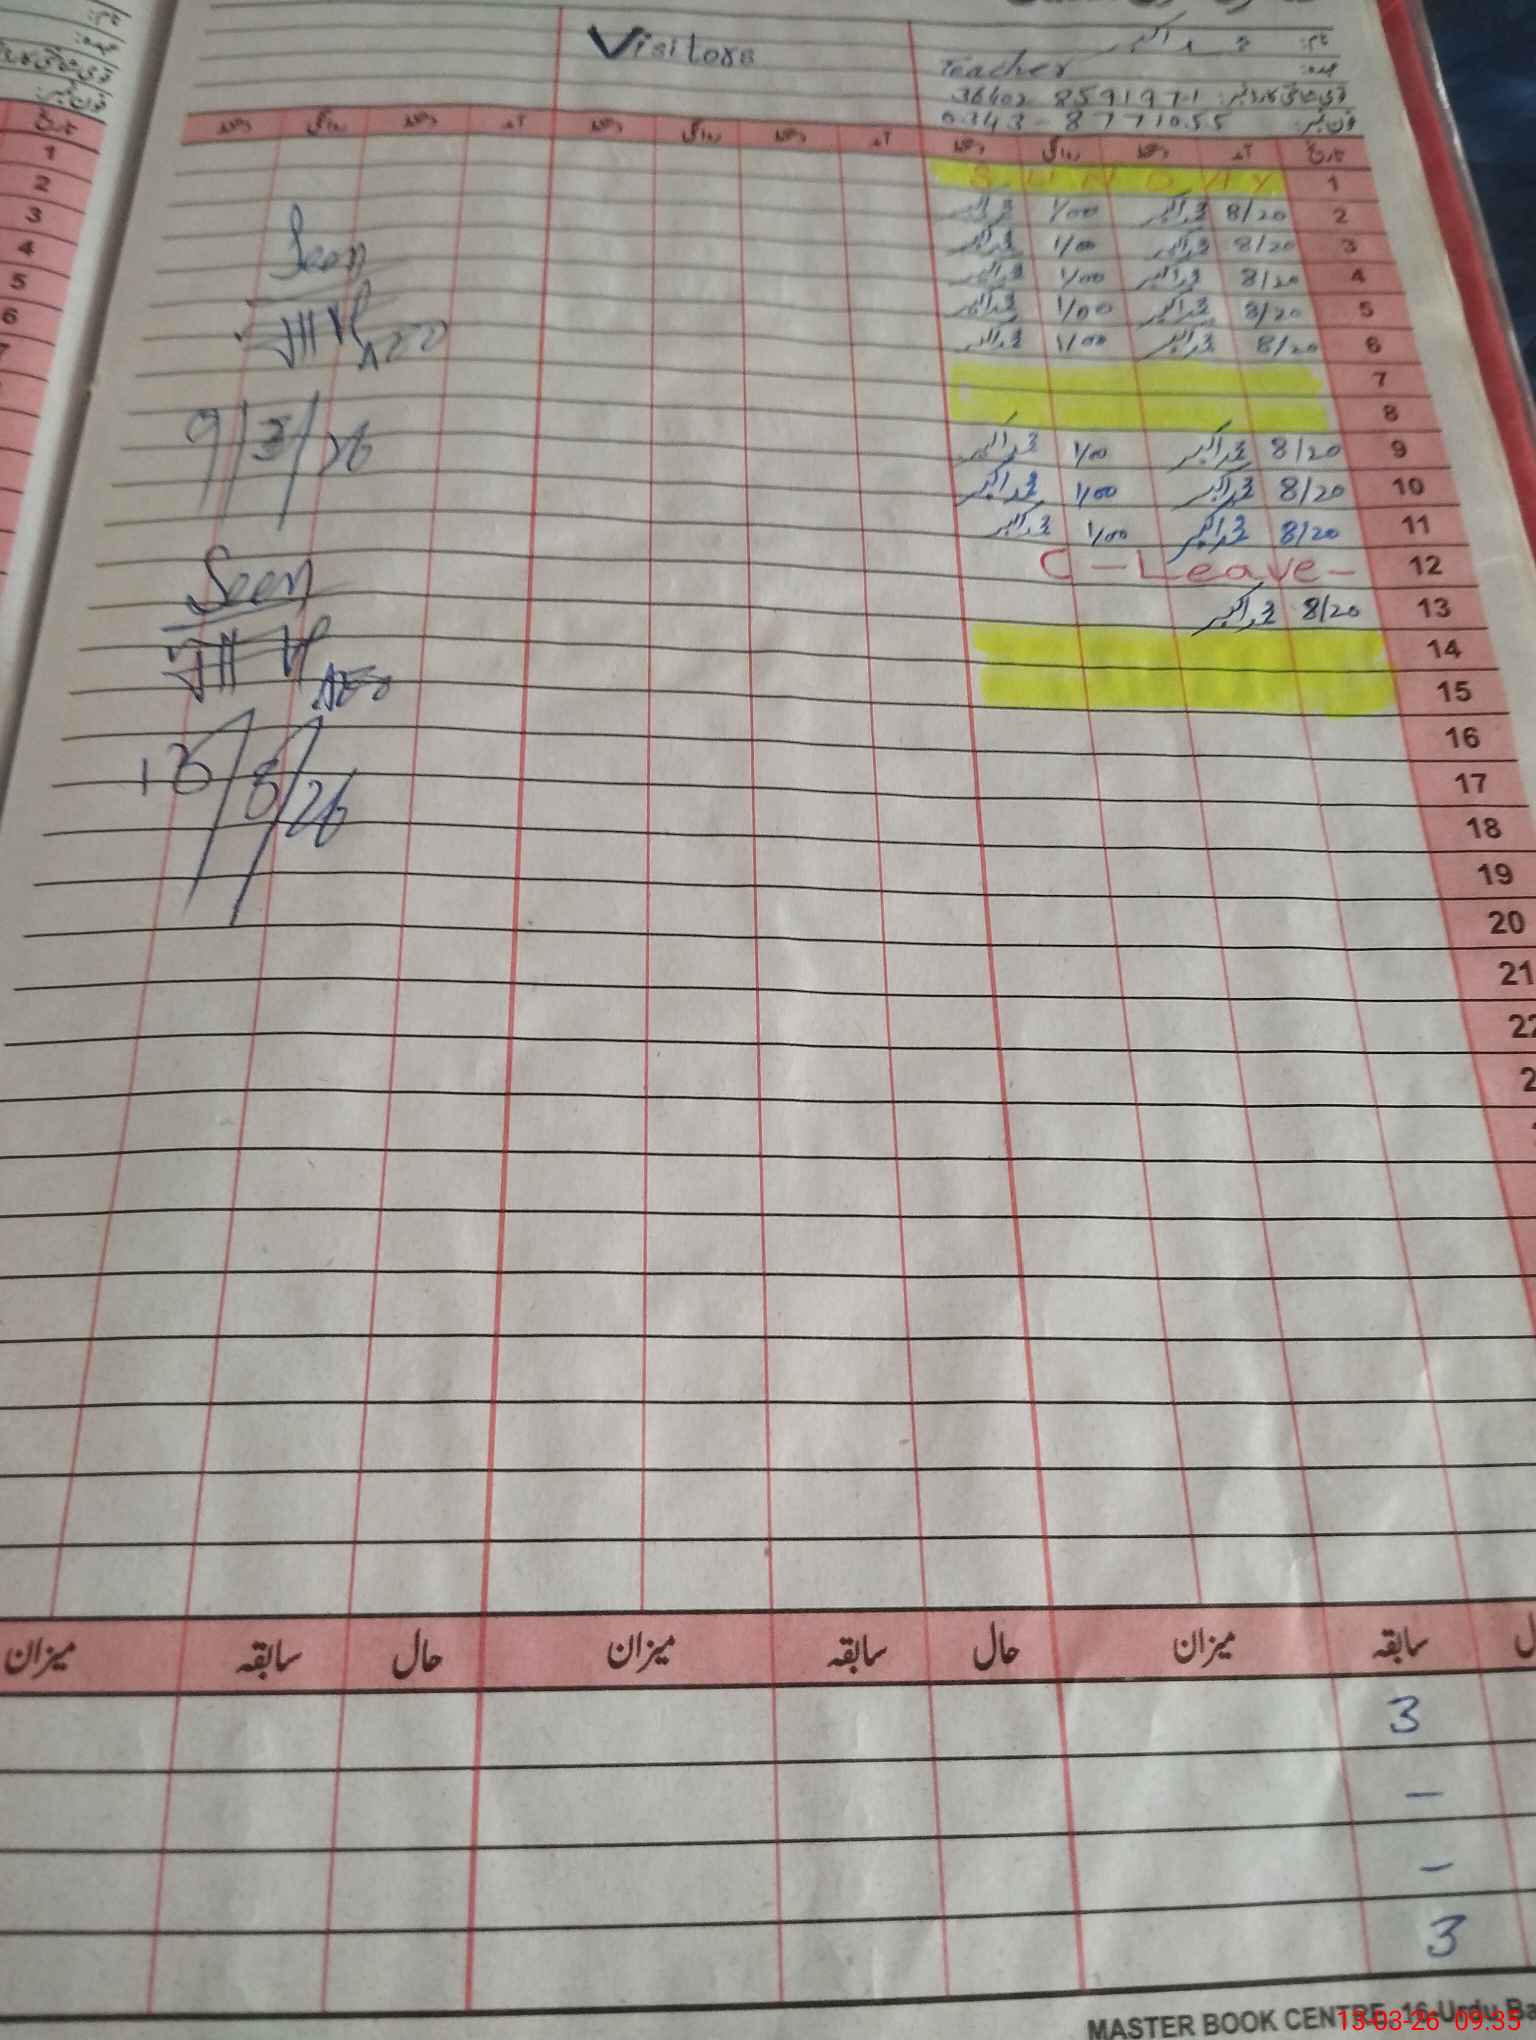 Visitors
نام: محمد اکبر
عہدہ: Teacher
قومی شناختی کارڈ نمبر: 36402 8591971
فون نمبر: 0343-8771055
تاریخ آمد دستخط روانگی دستخط آمد دستخط روانگی دستخط آمد دستخط روانگی دستخط
1 SUNDAY
2 8/20 محمد اکبر 1/00 محمد اکبر
3 8/20 محمد اکبر 1/00 محمد اکبر
4 8/20 محمد اکبر 1/00 محمد اکبر
5 8/20 محمد اکبر 1/00 محمد اکبر
6 8/20 محمد اکبر 1/00 محمد اکبر
7
8
9 8/20 محمد اکبر 1/00 محمد اکبر
10 8/20 محمد اکبر 1/00 محمد اکبر
11 8/20 محمد اکبر 1/00 محمد اکبر
12 C-Leave-
13 8/20 محمد اکبر
14
15
16
17
18
19
20
21
22
Seen
AEO
9/3/26
Seen
AEO
13/3/26
تاریخ
1
2
3
4
5
6
7
سابقہ میزان حال سابقہ میزان حال سابقہ میزان
3
-
-
3
MASTER BOOK CENTRE, 16-Urdu Ba
13-03-26 09:35